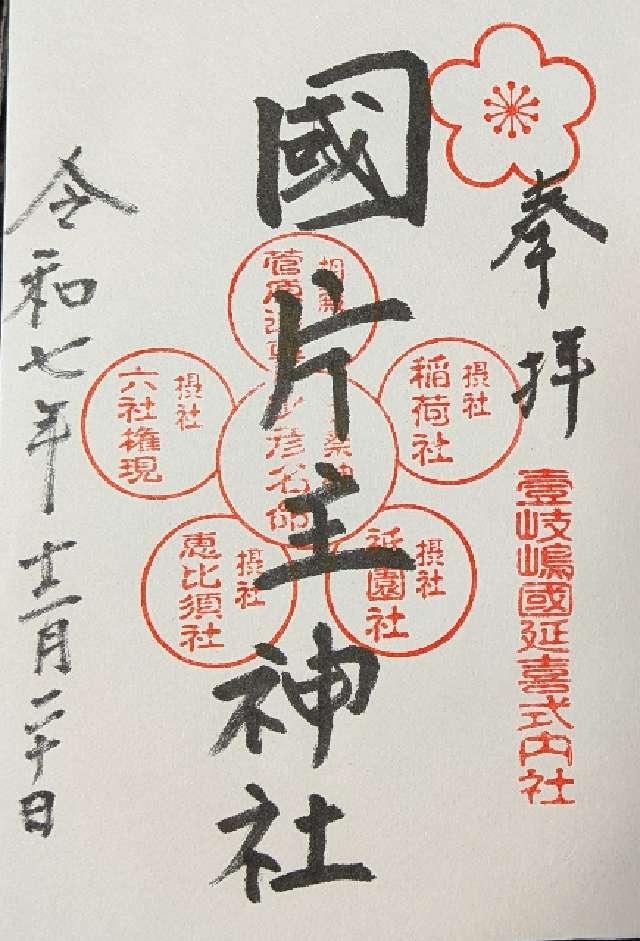 奉拝
壹岐嶋國延喜式内社
國片主神社
相殿
菅原道真
摂社
稲荷社
彦名命
摂社
祇園社
摂社
恵比須社
摂社
六社権現
令和七年十二月二十日